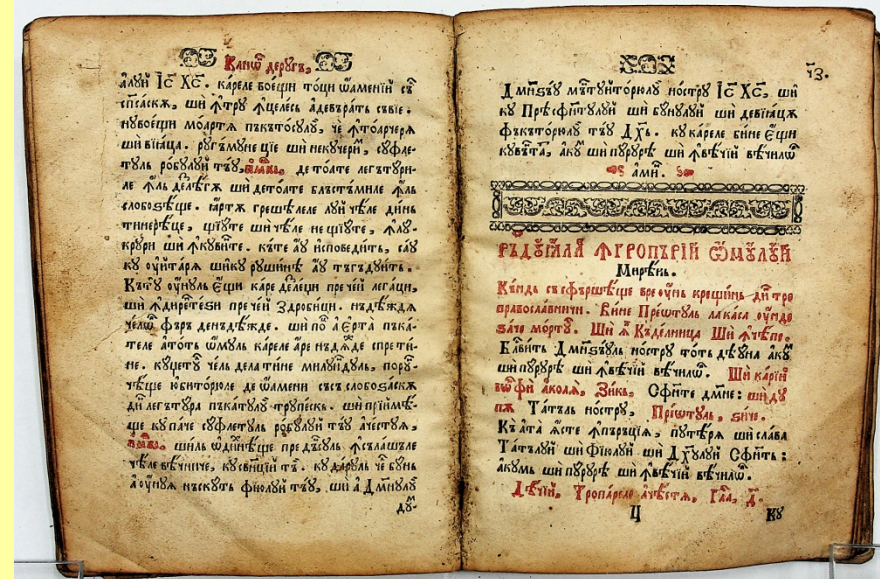 Канѡ҆ дерꙋгъ,
а҆лꙋй І҆с҃ Х҃с. кареле боє́щи то́ци ѡ҆аме́нїй съ̀
сп҃саскъ, шѝ ꙟ҆тру ꙟ҆целе́съ а҆девъра́тъ съвїе.
нꙋвоє́щи мо́артѧ пъкъто́сꙋлꙋ, чѐ ꙟ҆то́арчерѧ
шѝ вїа́ца. рꙋгъ́мꙋне цїе шѝ некꙋчери́м, сꙋфле-
тꙋль ро́бꙋлꙋй тъ́ꙋ, де то́ате легътꙋри-
ле ꙟ҆ль деле́гѫ шѝ дето́ате бльстъ́миле ꙟ҆ль
слобоѕѣ́ще. ꙗ҆ртъ̀ греше́леле лꙋй че́ле ди́нь
тинере́це, щїꙋте шѝ че́ле нещїꙋте, ꙟ҆лꙋ-
крꙋри шѝ ꙟ҆кꙋви́нте. къ́те а҆ꙋ и҆споведи́ть, са́ꙋ
кꙋ ᲂу҆йта́рѧ шѝкꙋ рꙋши́нѣ а҆ꙋ тъгъдꙋи́ть.
Къ́тꙋ ᲂу҆́нꙋль є҆́щи ка́ре деле́ци пре че́й лега́ци,
шѝ ꙟ҆дире́теѕи пре че́й Здроби́ци. нъдѣ́ждѧ
че́лѡ҆ фъръ̀ денъдѣ́жде. шѝ по́ а҆ є҆рта̀ пъка́-
теле а҆то́ть ѡ҆́мꙋль ка́реле а҆́ре нъдѣ́жде спре ти́-
не. кꙋцетѡ҆ че́ль дела ти́не милꙋи́ндꙋль, порꙋ́н-
че́ще ю҆бито́рюле де ѡ҆аме́ни съсъ слобоѕа́скъ
ди́н легътꙋ́ра пъка́тꙋлꙋ трꙋпе́скь. шѝ прїимѣ́-
ще кꙋ па́че сꙋфле́тꙋль ро́бꙋлꙋй тъ́ꙋ а҆че́стꙗ,
шѝль ѡ҆дихнѣ́ще пре дъ́нсꙋль ꙟ҆съла́шꙋле
че́ле вѣ́чниче, кꙋ сви́нцїй тъ́. кꙋ да́рꙋль че́ бꙋнь
а҆ ᲂу҆нꙋѧ нъскꙋ́ть фїюлꙋй тъ́ꙋ, шѝ а҆ Дм҃нꙋлꙋ
дꙋ-
гі.
Дм҃неѕꙋ мътꙋито́рюлꙋ но́стрꙋ І҆с҃ Х҃с, шѝ
кꙋ Прѣсфи́тꙋлꙋй шѝ бꙋ́нꙋлꙋй шѝ девїа́цѫ
фъкъто́рюлꙋ тъ́ꙋ Дх҃ь. кꙋ ка́реле би́не є҆́щи
кꙋвъ́нта, а҆кꙋ́м шѝ пꙋрꙋ́рѣ шѝ ꙟ҆вѣ́чїй вѣ́чилѡ҆
а҆ми́н.
РЪДꙊꙖЛА ꙞГРОПЪРЇЙ Ѡ҆МꙊЛꙊЙ
Мирѣ́нь.
Къ́ндь съ сфършѣ́ще вре ᲂу҆нь крещи́нь ди́н тре
православничи. Ви́не Прео́тꙋль ла ка́са ᲂу҆́нде
ѕа́че мо́ртꙋ. Шѝ ꙗ҆ Къде́лница Шѝ ꙟ҆че́пе.
Бл҃ви́ть Дм҃неѕꙋль но́стрꙋ то́ть де ᲂу҆́на а҆кꙋ́м
шѝ пꙋрꙋ́рѣ шѝ ꙟ҆вѣ́чїй вѣ́чилѡ҆. Шѝ ка́рїи
во҆р фѝ а҆ко́лѧ, Зи́къ, Сфи́нте дм҃не: шѝ дꙋ-
пъ̀ Та́тъль но́стрꙋ, Прео́тꙋль, ѕи́че.
Къ а҆та̀ ꙗ҆́сте ꙟ҆пъръцїѧ, пꙋте́рѧ шѝ сла́ва
Та́тълꙋй шѝ фїюлꙋй шѝ Дх҃ꙋлꙋй Сфи́нть:
а҆кꙋ́мь шѝ пꙋрꙋ́рѣ шѝ ꙟ҆вѣ́чїй вѣ́чилѡ҆.
Де́чїй, Тропа́реле а҆че́стѧ, Гла́, д҃.
Ц кꙋ